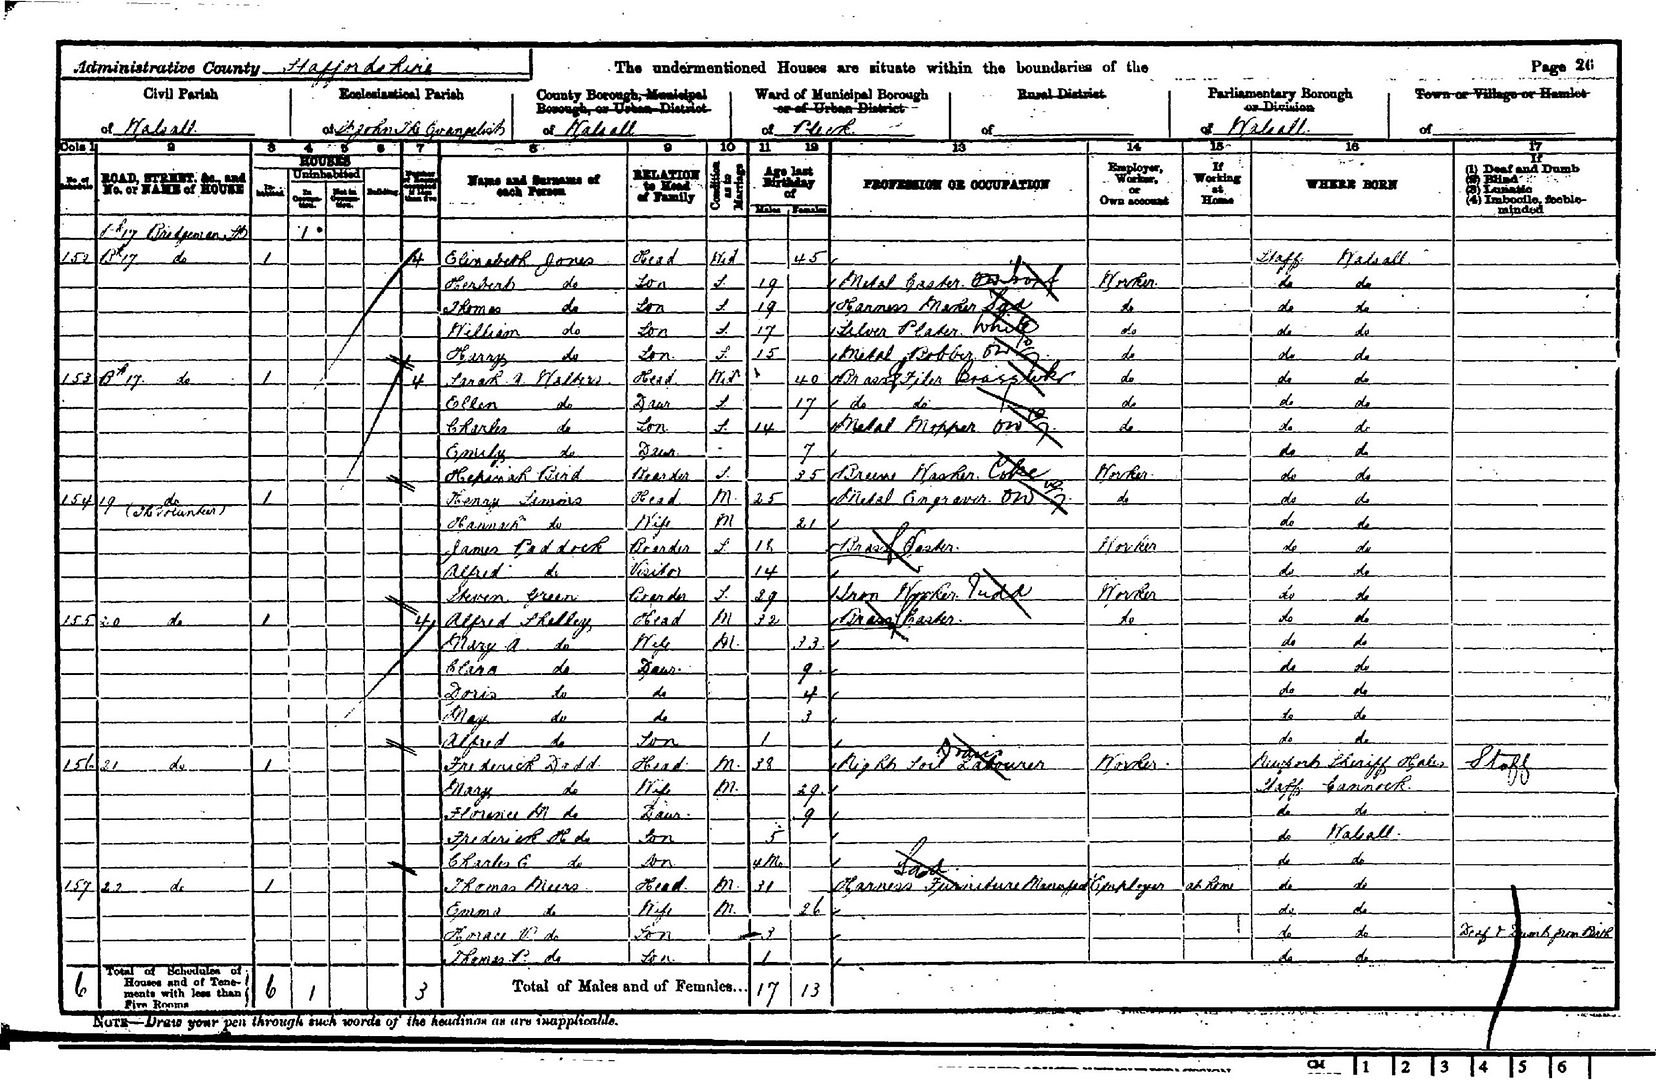 Administrative County Staffordshire
The undermentioned Houses are situate within the boundaries of the
Page 26
Civil Parish of Walsall
Ecclesiastical Parish of St John The Evangelist
County Borough, Municipal Borough, or Urban District of Walsall
Ward of Municipal Borough or of Urban District of Pleck
Rural District of
Parliamentary Borough or Division of Walsall
Town or Village or Hamlet of
Cols 1 2 3 4 5 6 7 8 9 10 11 12 13 14 15 16 17
No. of Schedule
ROAD, STREET, &c., and No. or NAME of HOUSE
HOUSES
Inhabited
Uninhabited
In Occupation
Not in Occupation
Building
Name and Surname of each Person
RELATION to Head of Family
Condition as to Marriage
Age last Birthday of
Males Females
PROFESSION OR OCCUPATION
Employer, Worker, or Own account
If Working at Home
WHERE BORN
If (1) Deaf and Dumb (2) Blind (3) Lunatic (4) Imbecile, feeble-minded
17 Bridgeman St 1
152 17 do 1 4 Elizabeth Jones Head Wid 45 Staff Walsall
Herbert do Son S. 19 Metal Caster Worker do do
Thomas do Son S. 19 Harness Maker do do do
William do Son S. 17 Silver Plater White do do do
Harry do Son S. 15 Metal Bobber do do do
153 17 do 1 4 Sarah A Walters Head Wid 40 Brass Filer do do do
Ellen do Daur S. 17 do do do do do
Charles do Son S. 14 Metal Mopper do do do
Emily do Daur 7 do do
Bird Boarder S. 35 Washer Coke Worker do do
154 19 do 1 Henry Simms Head M. 25 Metal Engraver do do do
(The Volunteer)
Hannah do Wife M 21 do do
James Paddock Boarder S. 18 Brass Caster Worker do do
Alfred do Visitor 14 do do
Steven Green Boarder S. 29 Iron Worker Worker do do
155 20 do 1 4 Alfred Shelley Head M 32 Brass Caster do do do
Mary A do Wife M. 33 do do
Clara do Daur 9 do do
Doris do do 4 do do
May do do 3 do do
Alfred do Son 1 do do
156 21 do 1 Frederick Dodd Head M. 38 Night Soil Labourer Worker Newport Sheriff Hales Staff
Mary do Wife M. 29 Staff Cannock
Florence M do Daur 9 do do
Frederick H do Son 5 do Walsall
Charles E do Son 4 Mo do do
157 22 do 1 Thomas Meers Head M. 31 Harness Furniture Employer at home do do
Emma do Wife M. 26 do do
Horace V. do Son 3 do do Deaf & Dumb from Birth
Thomas P. do Son 1 do do
6 Total of Schedules of Houses and of Tenements with less than Five Rooms 6 1 3 Total of Males and of Females... 17 13
NOTE—Draw your pen through such words of the headings as are inapplicable.
CM 1 2 3 4 5 6